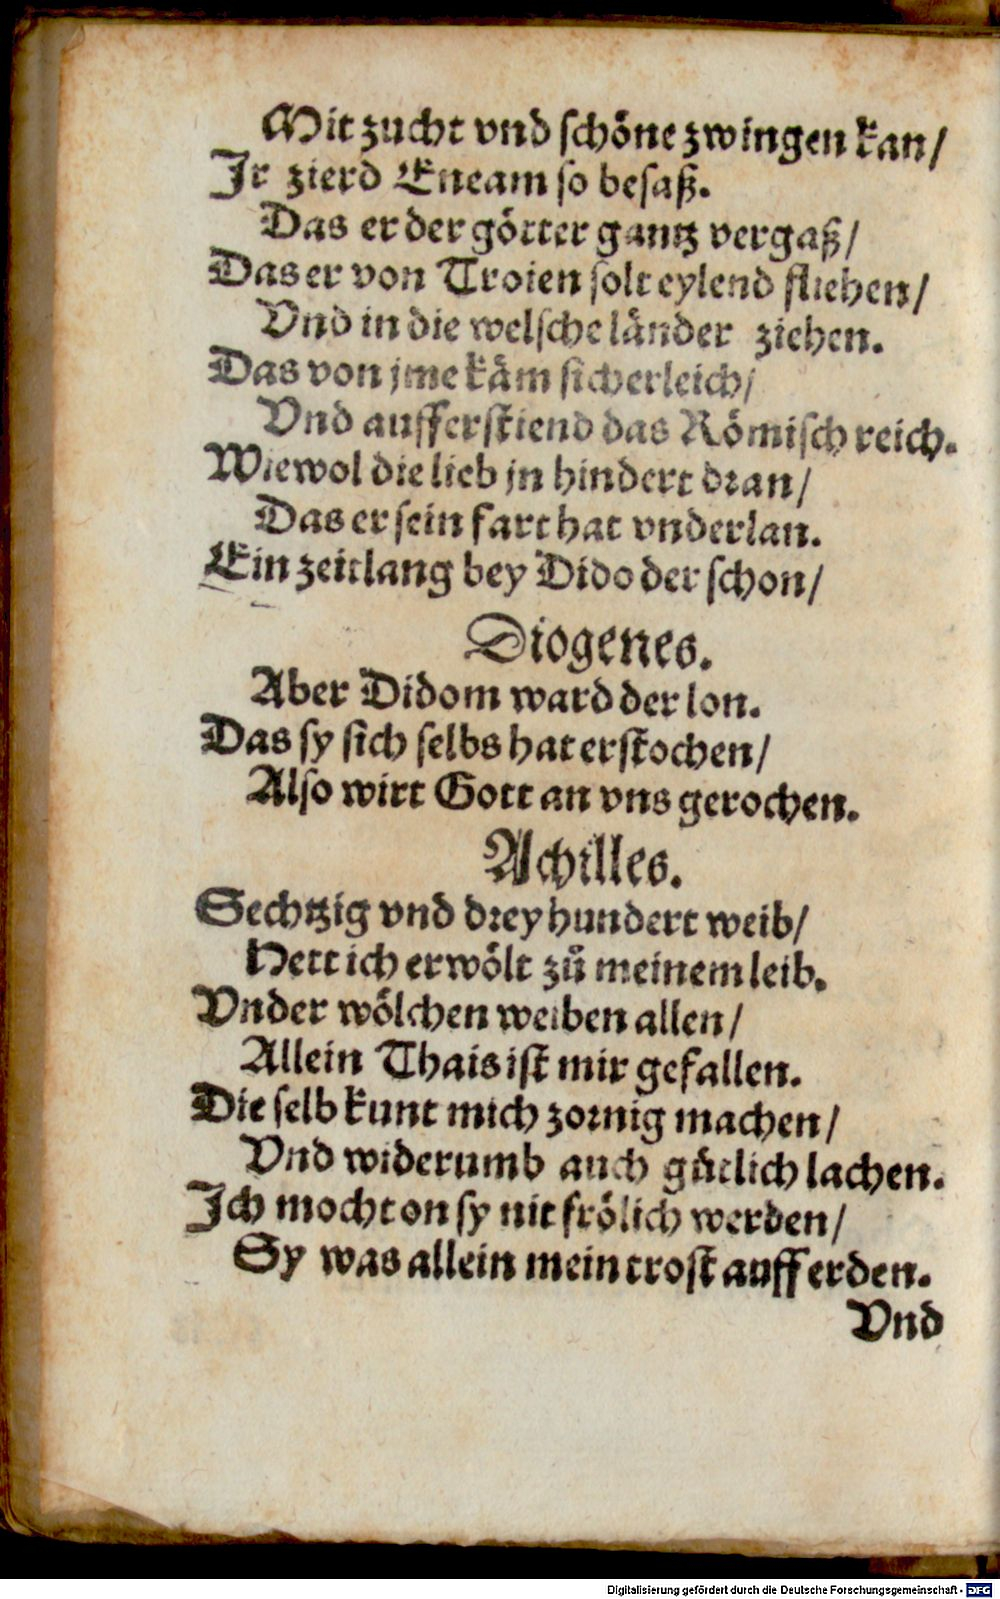 Mit zucht vnd schöne zwingen kan/
Jr zierd Eneam so besaß.
Das er der götter gantz vergaß/
Das er von Troien solt eylend fliehen/
Vnd in die welsche länder ziehen.
Das von jme käm sicherleich/
Vnd aufferstiend das Römisch reich.
Wiewol die lieb jn hindert dran/
Das er sein fart hat vnderlan.
Ein zeitlang bey Dido der schon/
Diogenes.
Aber Didom ward der lon.
Das sy sich selbs hat erstochen/
Also wirt Gott an vns gerochen.
Achilles.
Sechtzig vnd drey hundert weib/
Hett ich erwölt zů meinem leib.
Vnder wölchen weiben allen/
Allein Thais ist mir gefallen.
Die selb kunt mich zornig machen/
Vnd widerumb auch gütlich lachen.
Ich mocht on sy nit frölich werden/
Sy was allein mein trost auff erden.
Vnd
Digitalisierung gefördert durch die Deutsche Forschungsgemeinschaft - DFG